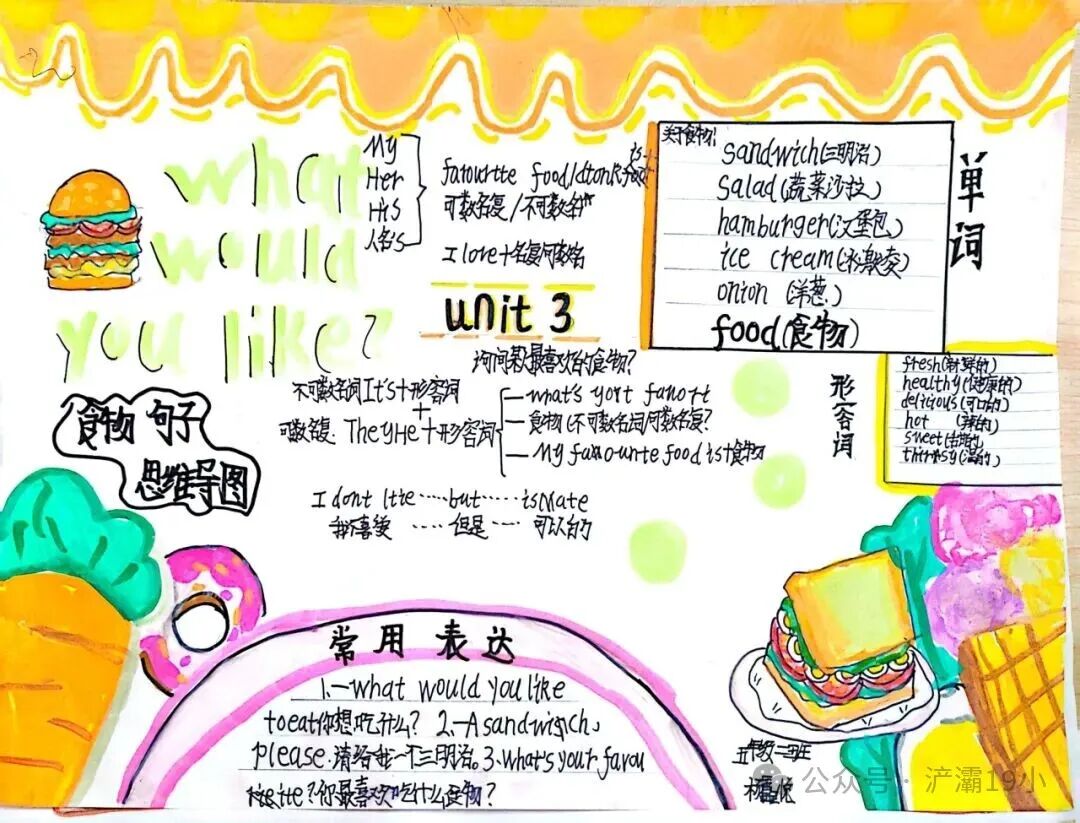 what
would
you like?
My
Her
His
人名's
favourtte food/
可数名复/不可数名
I love+名复
unit 3
询问最喜欢的食物?
不可数名词It's+形容词
+
可数名复: They +形容词
what's
食物(不可数名词/可数名复?
My food is+食物
I dont ······but······is
我不喜爱 ······但是······可以的
食物 句子
思维导图
关于食物:
sandwich(三明治)
salad(蔬菜沙拉)
hamburger(汉堡包)
ice cream(冰激凌)
onion (洋葱)
food(食物)
单词
形容词
fresh(新鲜的)
healthy(健康的)
delicious(可口的)
hot (辣的)
sweet(甜的)
常用 表达
1.—what would you like
to eat你想吃什么? 2.—A sandwich,
please.请给我一个三明治. 3.What's your favou
rite ?你最喜欢吃什么食物?
五年级二班
公众号·浐灞19小